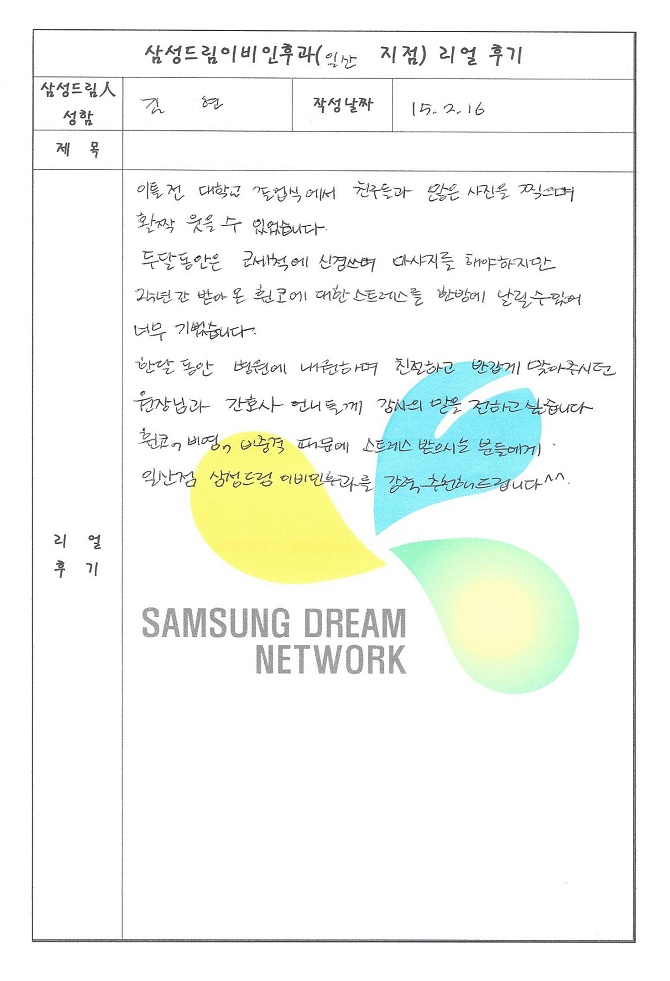 삼성드림이비인후과(일산 지점) 리얼 후기
삼성드림人 성함
김 현
작성날짜
15. 2. 16
제 목
리 얼 후 기
이틀전 대학교 졸업식에서 친구들과 많은 사진을 찍으며
활짝 웃을 수 있었습니다.
두달동안은 코세척에 신경쓰며 마사지를 해야하지만
25년간 받아온 휜코에 대한 스트레스를 한방에 날릴수있어
너무 기뻤습니다.
한달 동안 병원에 내원하며 친절하고 반갑게 맞아주시던
원장님과 간호사 언니들께 감사의 말을 전하고 싶습니다
휜코, 비염, 비중격 때문에 스트레스 받으시는 분들에게
일산점 삼성드림 이비인후과를 강력추천해드립니다^^.
SAMSUNG DREAM
NETWORK